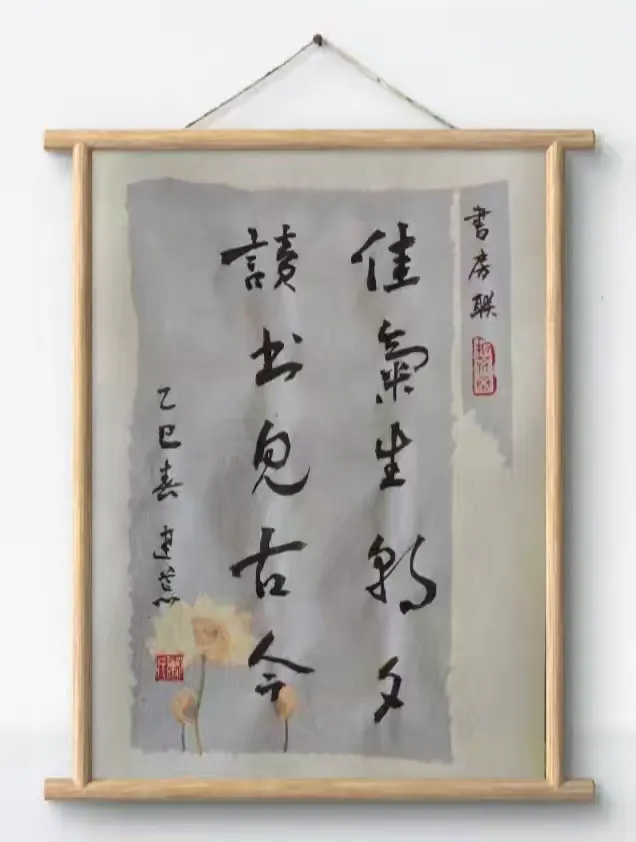 書房联
佳氣生朝夕
讀书見古今
乙巳春建蕉